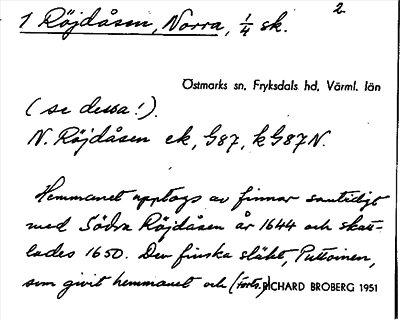 1 Röjdåsen, Norra, 1/4 sk. 2.
Östmarks sn, Fryksdals hd, Värml. län
(se dessa!).
N. Röjdåsen ek, G87, kG87N.
Hemmanet upptogs av finnar samtidigt
med Södra Röjdåsen år 1644 och skatt-
lades 1650. Den finska släkt, Puttoinen,
som givit hemmanet och (forts.) RICHARD BROBERG 1951